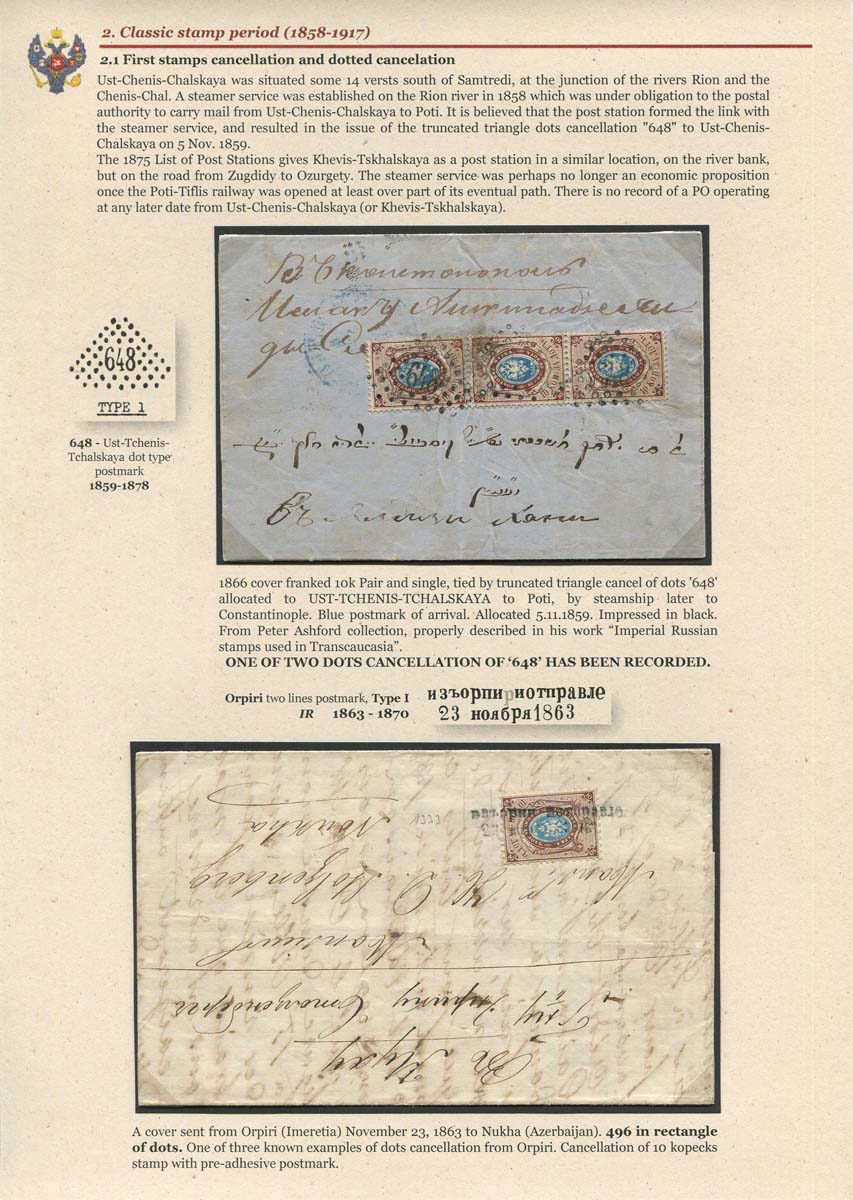 2. Classic stamp period (1858-1917)
2.1 First stamps cancellation and dotted cancelation
Ust-Chenis-Chalskaya was situated some 14 versts south of Samtredi, at the junction of the rivers Rion and the
Chenis-Chal. A steamer service was established on the Rion river in 1858 which was under obligation to the postal
authority to carry mail from Ust-Chenis-Chalskaya to Poti. It is believed that the post station formed the link with
the steamer service, and resulted in the issue of the truncated triangle dots cancellation "648" to Ust-Chenis-
Chalskaya on 5 Nov. 1859.
The 1875 List of Post Stations gives Khevis-Tskhalskaya as a post station in a similar location, on the river bank,
but on the road from Zugdidy to Ozurgety. The steamer service was perhaps no longer an economic proposition
once the Poti-Tiflis railway was opened at least over part of its eventual path. There is no record of a PO operating
at any later date from Ust-Chenis-Chalskaya (or Khevis-Tskhalskaya).
648
TYPE 1
648 - Ust-Tchenis-
Tchalskaya dot type
postmark
1859-1878
1866 cover franked 10k Pair and single, tied by truncated triangle cancel of dots '648'
allocated to UST-TCHENIS-TCHALSKAYA to Poti, by steamship later to
Constantinople. Blue postmark of arrival. Allocated 5.11.1859. Impressed in black.
From Peter Ashford collection, properly described in his work “Imperial Russian
stamps used in Transcaucasia”.
ONE OF TWO DOTS CANCELLATION OF ‘648’ HAS BEEN RECORDED.
Orpiri two lines postmark, Type I
IR 1863 - 1870
изъорпириотправле
23 ноября1863
1333
Noukha
Stolzenberg
Monsieur
Въ Нуху
A cover sent from Orpiri (Imeretia) November 23, 1863 to Nukha (Azerbaijan). 496 in rectangle
of dots. One of three known examples of dots cancellation from Orpiri. Cancellation of 10 kopecks
stamp with pre-adhesive postmark.